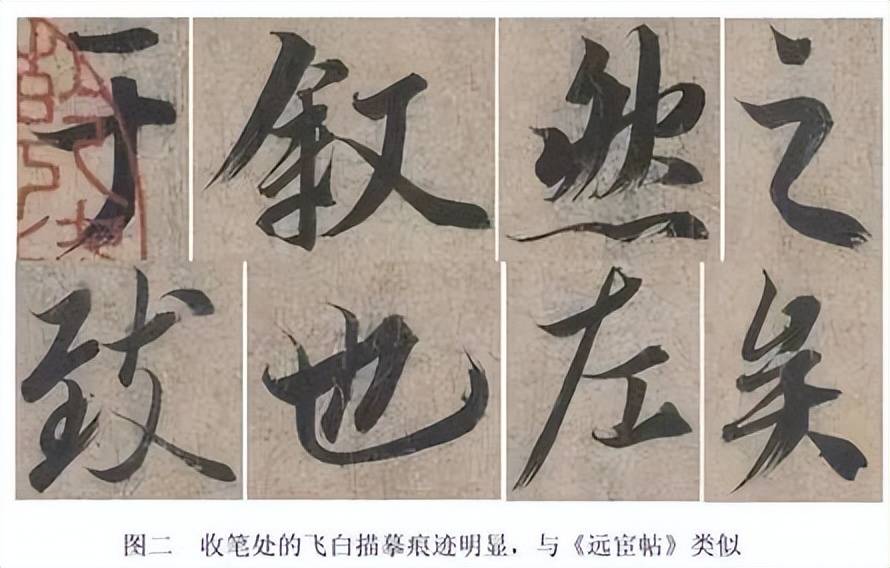 于 叙 然 之
致 也 左 矣
图二 收笔处的飞白描摹痕迹明显，与《远宦帖》类似